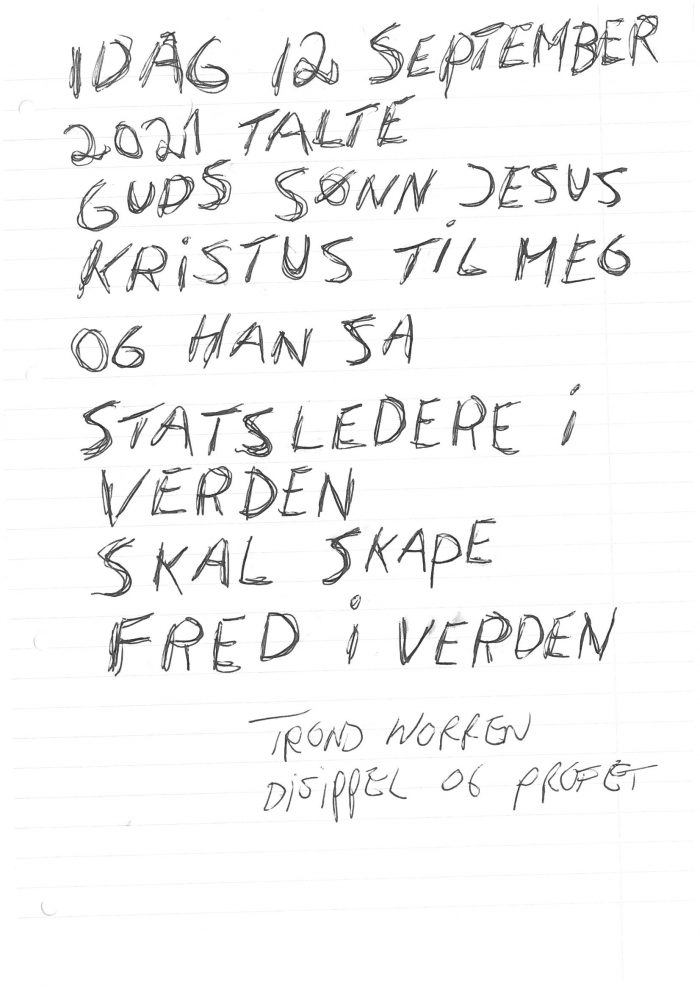 IDAG 12 SEPTEMBER
2021 TALTE
GUDS SØNN JESUS
KRISTUS TIL MEG
OG HAN SA
STATSLEDERE i
VERDEN
SKAL SKAPE
FRED i VERDEN
TROND WORREN
DISIPPEL OG PROFET